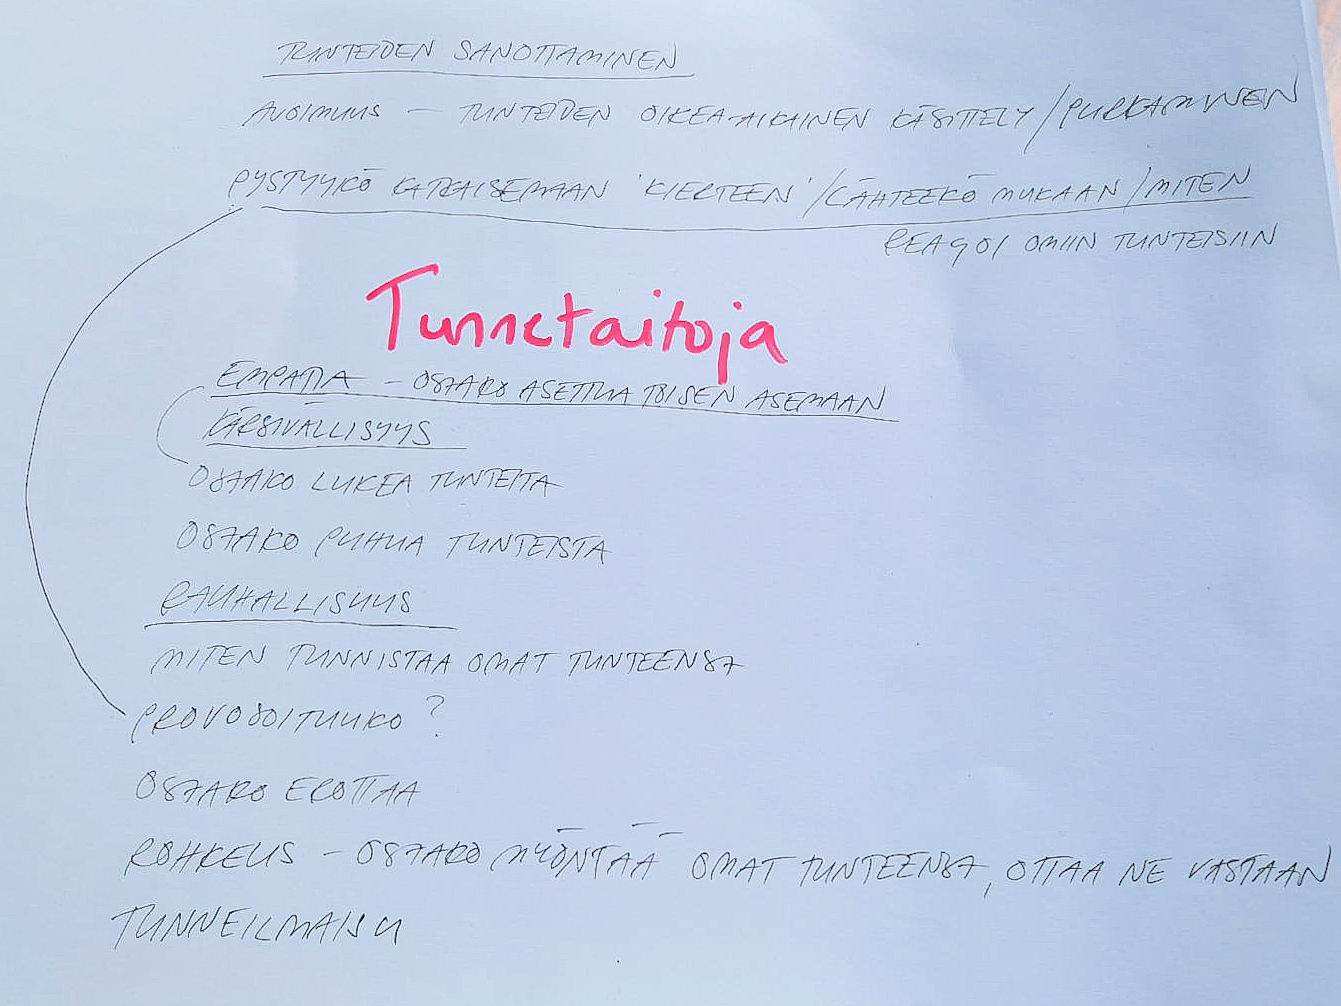 TUNTEIDEN SANOITTAMINEN
AVOIMUUS – TUNTEIDEN OIKEA-AIKAINEN KÄSITTELY / PURKAMINEN
PYSTYYKÖ KATKAISEMAAN 'KIERTEEN' / LÄHTEEKÖ MUKAAN / MITEN
REAGOI OMIIN TUNTEISIIN
Tunnetaitoja
EMPATIA – OSAAKO ASETTUA TOISEN ASEMAAN
KÄRSIVÄLLISYYS
OSAAKO LUKEA TUNTEITA
OSAAKO PUHUA TUNTEISTA
RAUHALLISUUS
MITEN TUNNISTAA OMAT TUNTEENSA
PROVOSOITUUKO?
OSAAKO EROTTAA
ROHKEUS – OSAAKO MYÖNTÄÄ OMAT TUNTEENSA, OTTAA NE VASTAAN
TUNNEILMAISU